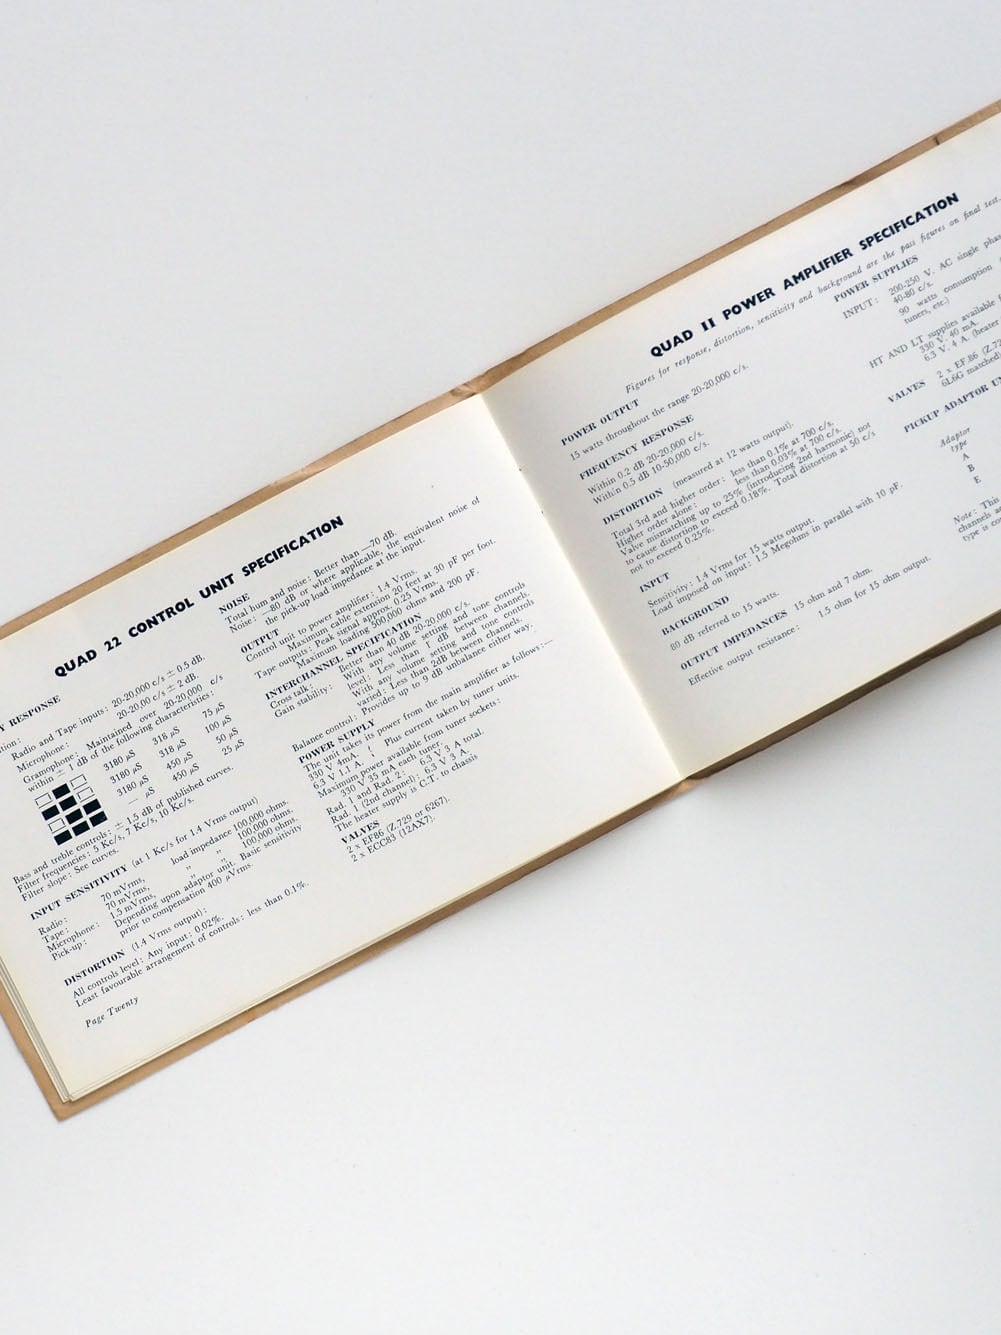 QUAD 22 CONTROL UNIT SPECIFICATION
Y RESPONSE
Radio and Tape inputs: 20-20,000 c/s ± 0.5 dB.
Microphone: 20-20,00 c/s ± 2 dB.
Gramophone: Maintained over 20-20,000 c/s
within ± 1 dB of the following characteristics:
3180 µS 318 µS 75 µS
3180 µS 318 µS 100 µS
3180 µS 450 µS 50 µS
— µS 450 µS 25 µS
Bass and treble controls: ± 1.5 dB of published curves.
Filter frequencies: 5 Kc/s, 7 Kc/s, 10 Kc/s.
Filter slope: See curves.
INPUT SENSITIVITY (at 1 Kc/s for 1.4 Vrms output)
Radio: 70 mVrms, load impedance 100,000 ohms.
Tape: 70 mVrms, „ „ 100,000 ohms.
Microphone: 1.5 mVrms, „ „ 100,000 ohms.
Pick-up: Depending upon adaptor unit. Basic sensitivity
prior to compensation 400 µVrms.
DISTORTION (1.4 Vrms output):
All controls level: Any input: 0.02%.
Least favourable arrangement of controls: less than 0.1%.
Page Twenty
NOISE
Total hum and noise: Better than —70 dB.
Noise: —80 dB or where applicable, the equivalent noise of
the pick-up load impedance at the input.
OUTPUT
Control unit to power amplifier: 1.4 Vrms.
Maximum cable extension 20 feet at 30 pF per foot.
Tape outputs: Peak signal approx. 0.25 Vrms.
Maximum loading 500,000 ohms and 200 pF.
INTERCHANNEL SPECIFICATION
Cross talk: Better than 40 dB 20-20,000 c/s.
Gain stability: With any volume setting and tone controls
level: Less than 1 dB between channels.
With any volume setting and tone controls
varied: Less than 2dB between channels.
Balance control: Provides up to 9 dB unbalance either way.
POWER SUPPLY
The unit takes its power from the main amplifier as follows:—
330 V 4mA
6.3 V 1.1 A. Plus current taken by tuner units.
Maximum power available from tuner sockets:
330 V 35 mA each tuner.
Rad. 1 and Rad. 2: 6.3 V 3 A total.
Rad. 1 (2nd channel): 6.3 V 3 A.
The heater supply is C.T. to chassis
VALVES
2 x EF86 (Z.729 or 6267).
2 x ECC83 (12AX7).
QUAD II POWER AMPLIFIER SPECIFICATION
Figures for response, distortion, sensitivity and background are the pass figures on final test.
POWER OUTPUT
15 watts throughout the range 20-20,000 c/s.
FREQUENCY RESPONSE
Within 0.2 dB 20-20,000 c/s.
Within 0.5 dB 10-50,000 c/s.
DISTORTION (measured at 12 watts output).
Total 3rd and higher order: less than 0.1% at 700 c/s.
Higher order alone: less than 0.03% at 700 c/s.
Valve mismatching up to 25% (introducing 2nd harmonic) not
to cause distortion to exceed 0.18%. Total distortion at 50 c/s
not to exceed 0.25%.
INPUT
Sensitivity: 1.4 Vrms for 15 watts output.
Load imposed on input: 1.5 Megohms in parallel with 10 pF.
BACKGROUND
80 dB referred to 15 watts.
OUTPUT IMPEDANCES 15 ohm and 7 ohm.
Effective output resistance: 1.5 ohm for 15 ohm output.
POWER SUPPLIES
INPUT: 200-250 V. AC single phas
40-80 c/s.
90 watts consumption
tuners, etc.)
HT AND LT supplies available
330 V. 40 mA.
6.3 V. 4 A. (heater
VALVES 2 x EF.86 (Z.72
6L6G matched)
PICKUP ADAPTOR UN
Adaptor
type
A
B
E
Note: This
channels a
type is c